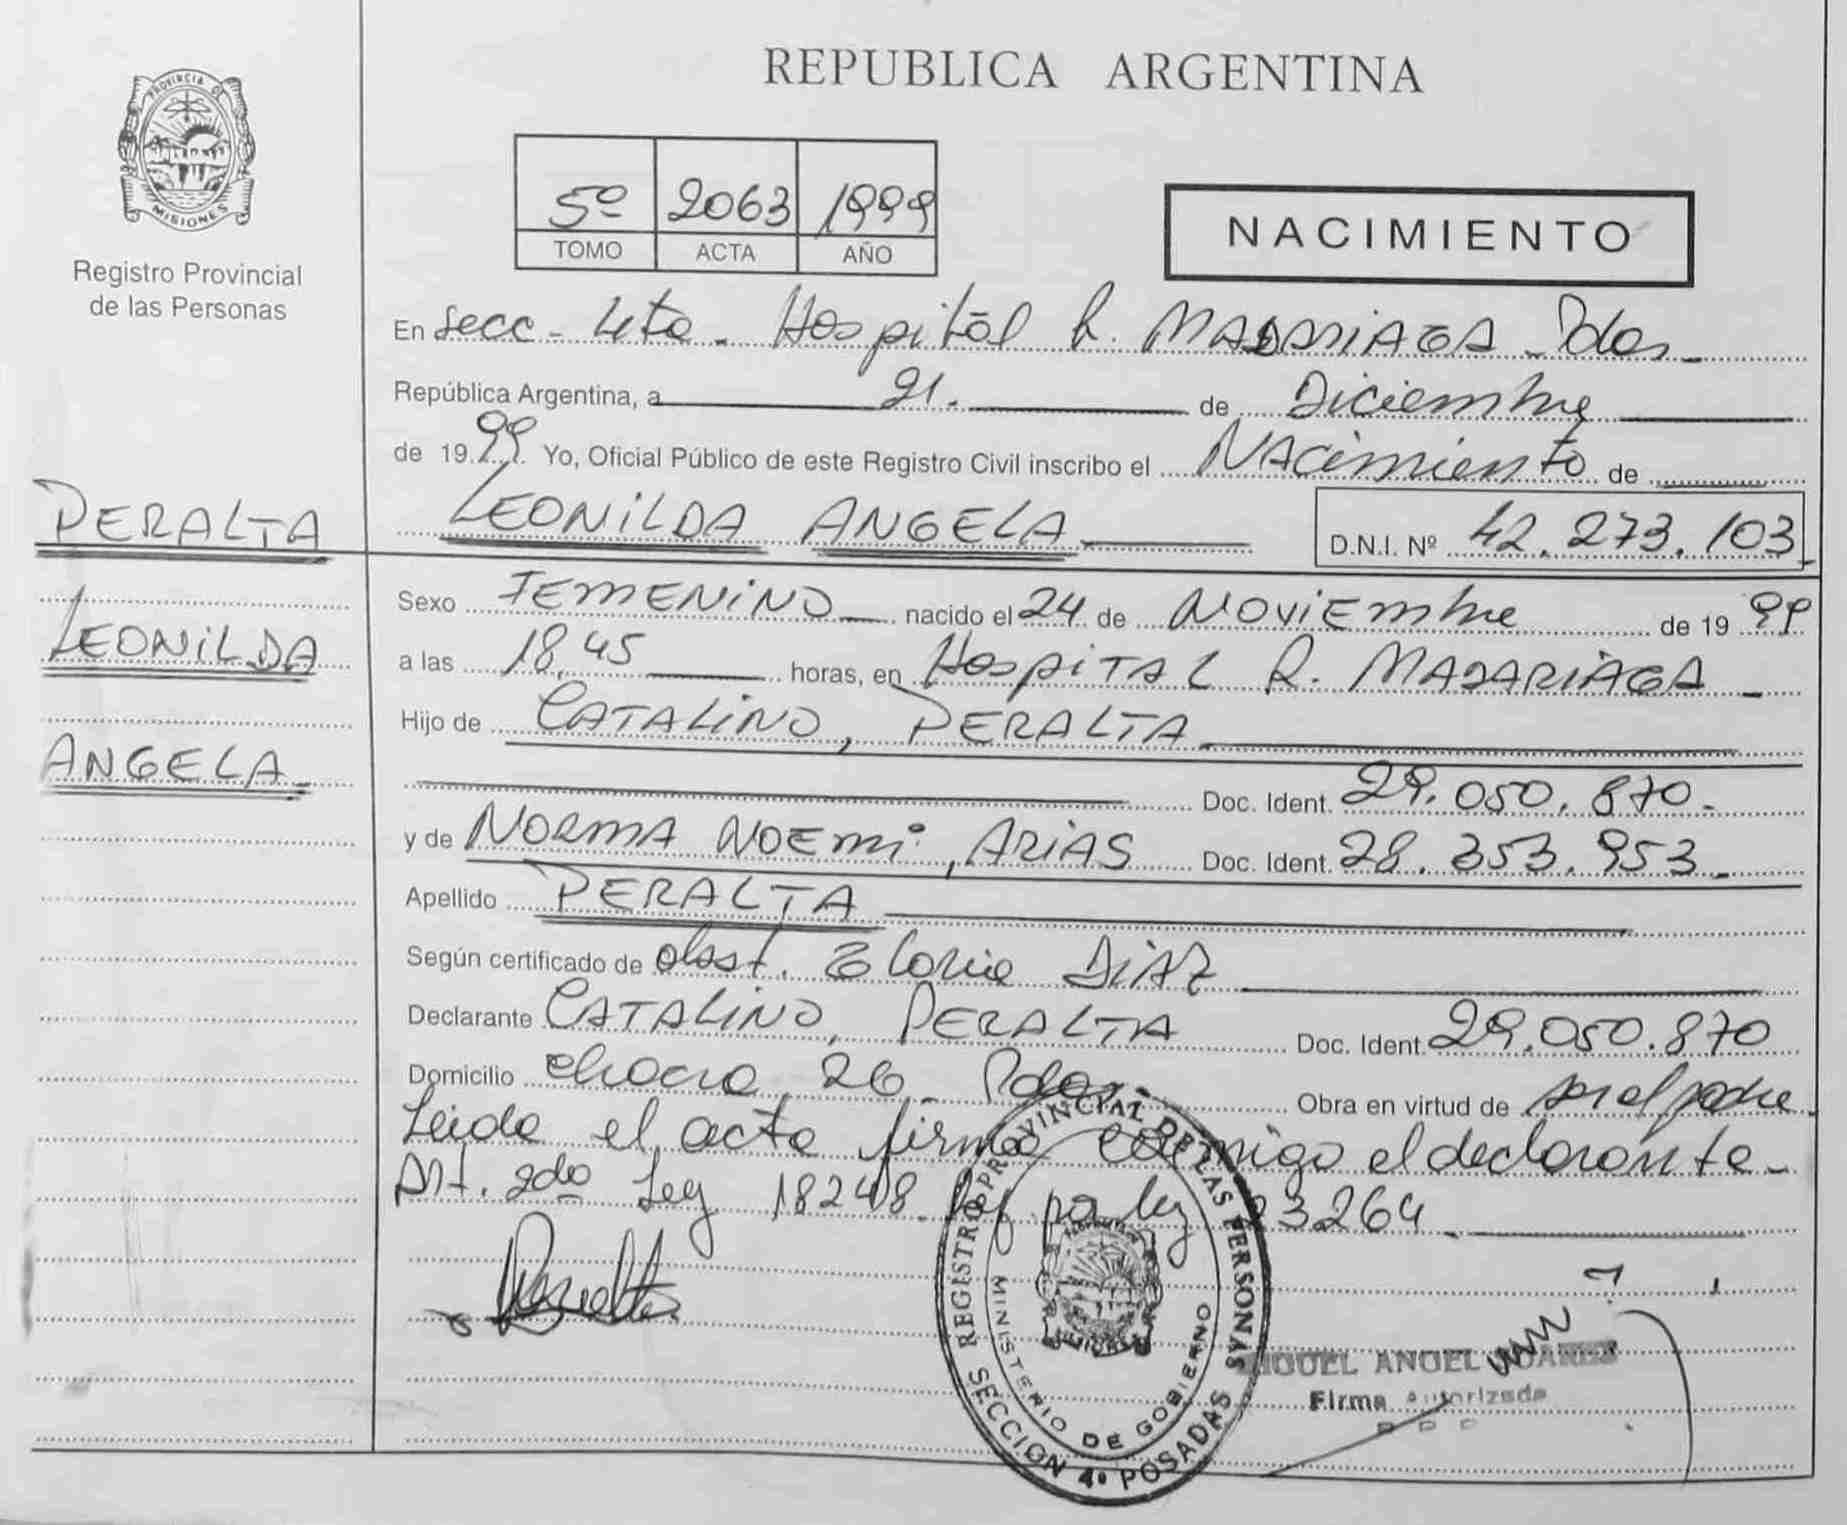 REPUBLICA ARGENTINA
PROVINCIA DE
MISIONES
Registro Provincial
de las Personas
5º 2063 1999
TOMO ACTA AÑO
NACIMIENTO
En Secc- 4ta - Hospital R. MADARIAGA - Pdas -
República Argentina, a 21. de Diciembre
de 1999 Yo, Oficial Público de este Registro Civil inscribo el NACimiento de
PERALTA
LEONiLDA ANGELA D.N.I. Nº 42.273.103
Sexo FEMENiNO nacido el 24 de NOViEmbre de 1999
LEONiLDA
a las 18,45 horas, en HospiTAL R. MADARiAGA -
Hijo de CATALiNO, PERALTA
ANGELA
Doc. Ident. 29.050.870-
y de NORMA NOEMi, ARiAS Doc. Ident. 28.353.953 -
Apellido PERALTA
Según certificado de obst. Gloria DiAZ
Declarante CATALiNO, PERALTA Doc. Ident. 29.050.870
Domicilio chacra 26 - Pdas Obra en virtud de ser el padre
Leida el acta firma conmigo el declarante -
Art. 2do Ley 18248 - por ley 23264
REGISTRO PROVINCIAL DE LAS PERSONAS
SECCION 4º POSADAS
MINISTERIO DE GOBIERNO
MISIONES
MIGUEL ANGEL
Firma Autorizada